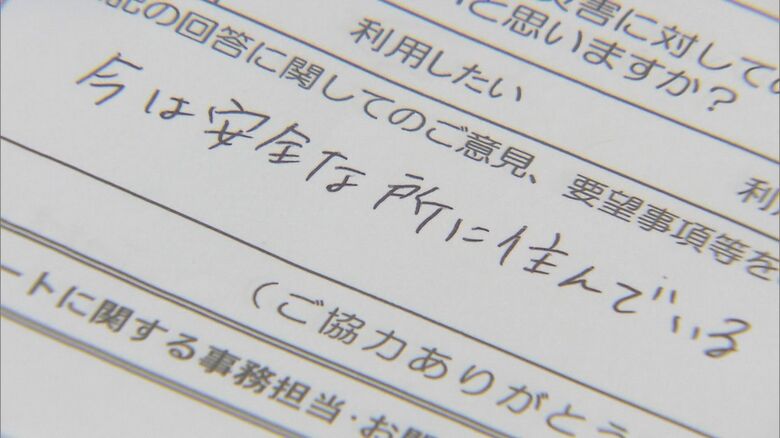 災害に対しての
と思いますか？
利用したい
記の回答に関してのご意見、要望事項等を
今は安全な所に住んでいる
（ご協力ありがとう
ートに関する事務担当・お問